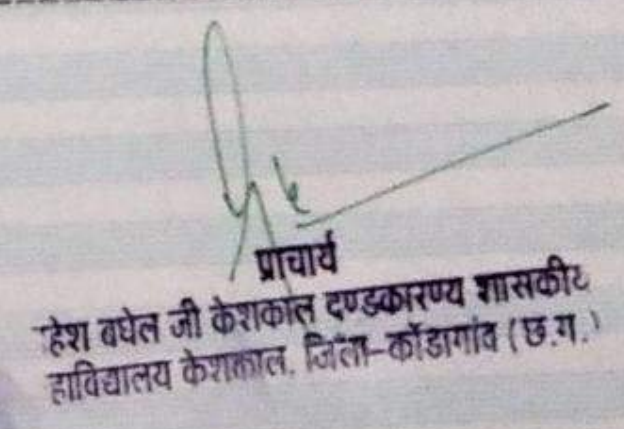 प्राचार्य
हेश बघेल जी केशकाल दण्डकारण्य शासकीट
हाविद्यालय केशकाल, जिला-कोंडागांव (छ.ग.)